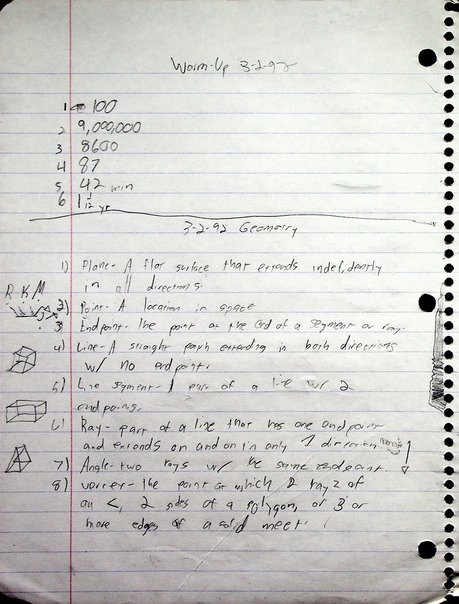 Warm-Up 3-2-92
1 100
2 9,000,000
3 8600
4 87
5. 42 min
6 1 1/12 yr
3-2-92 Geometry
1) Plane- A flat surface that extends indefidently
in all directions.
R K M
2) Point- A location in space
3) Endpoint- the point at the end of a segment or ray.
4) Line- A straight path extending in both directions
w/ no endpoint.
5) Line segment- 1 part of a line w/ 2
endpoints.
6) Ray- part of a line that has one endpoint
and extends on and on in only 1 direction.
7) Angle- two rays w/ the same endpoint.
8) vortex- the point at which 2 rayz of
an <, 2 sides of a polygon, or 3 or
more edges of a solid meet.